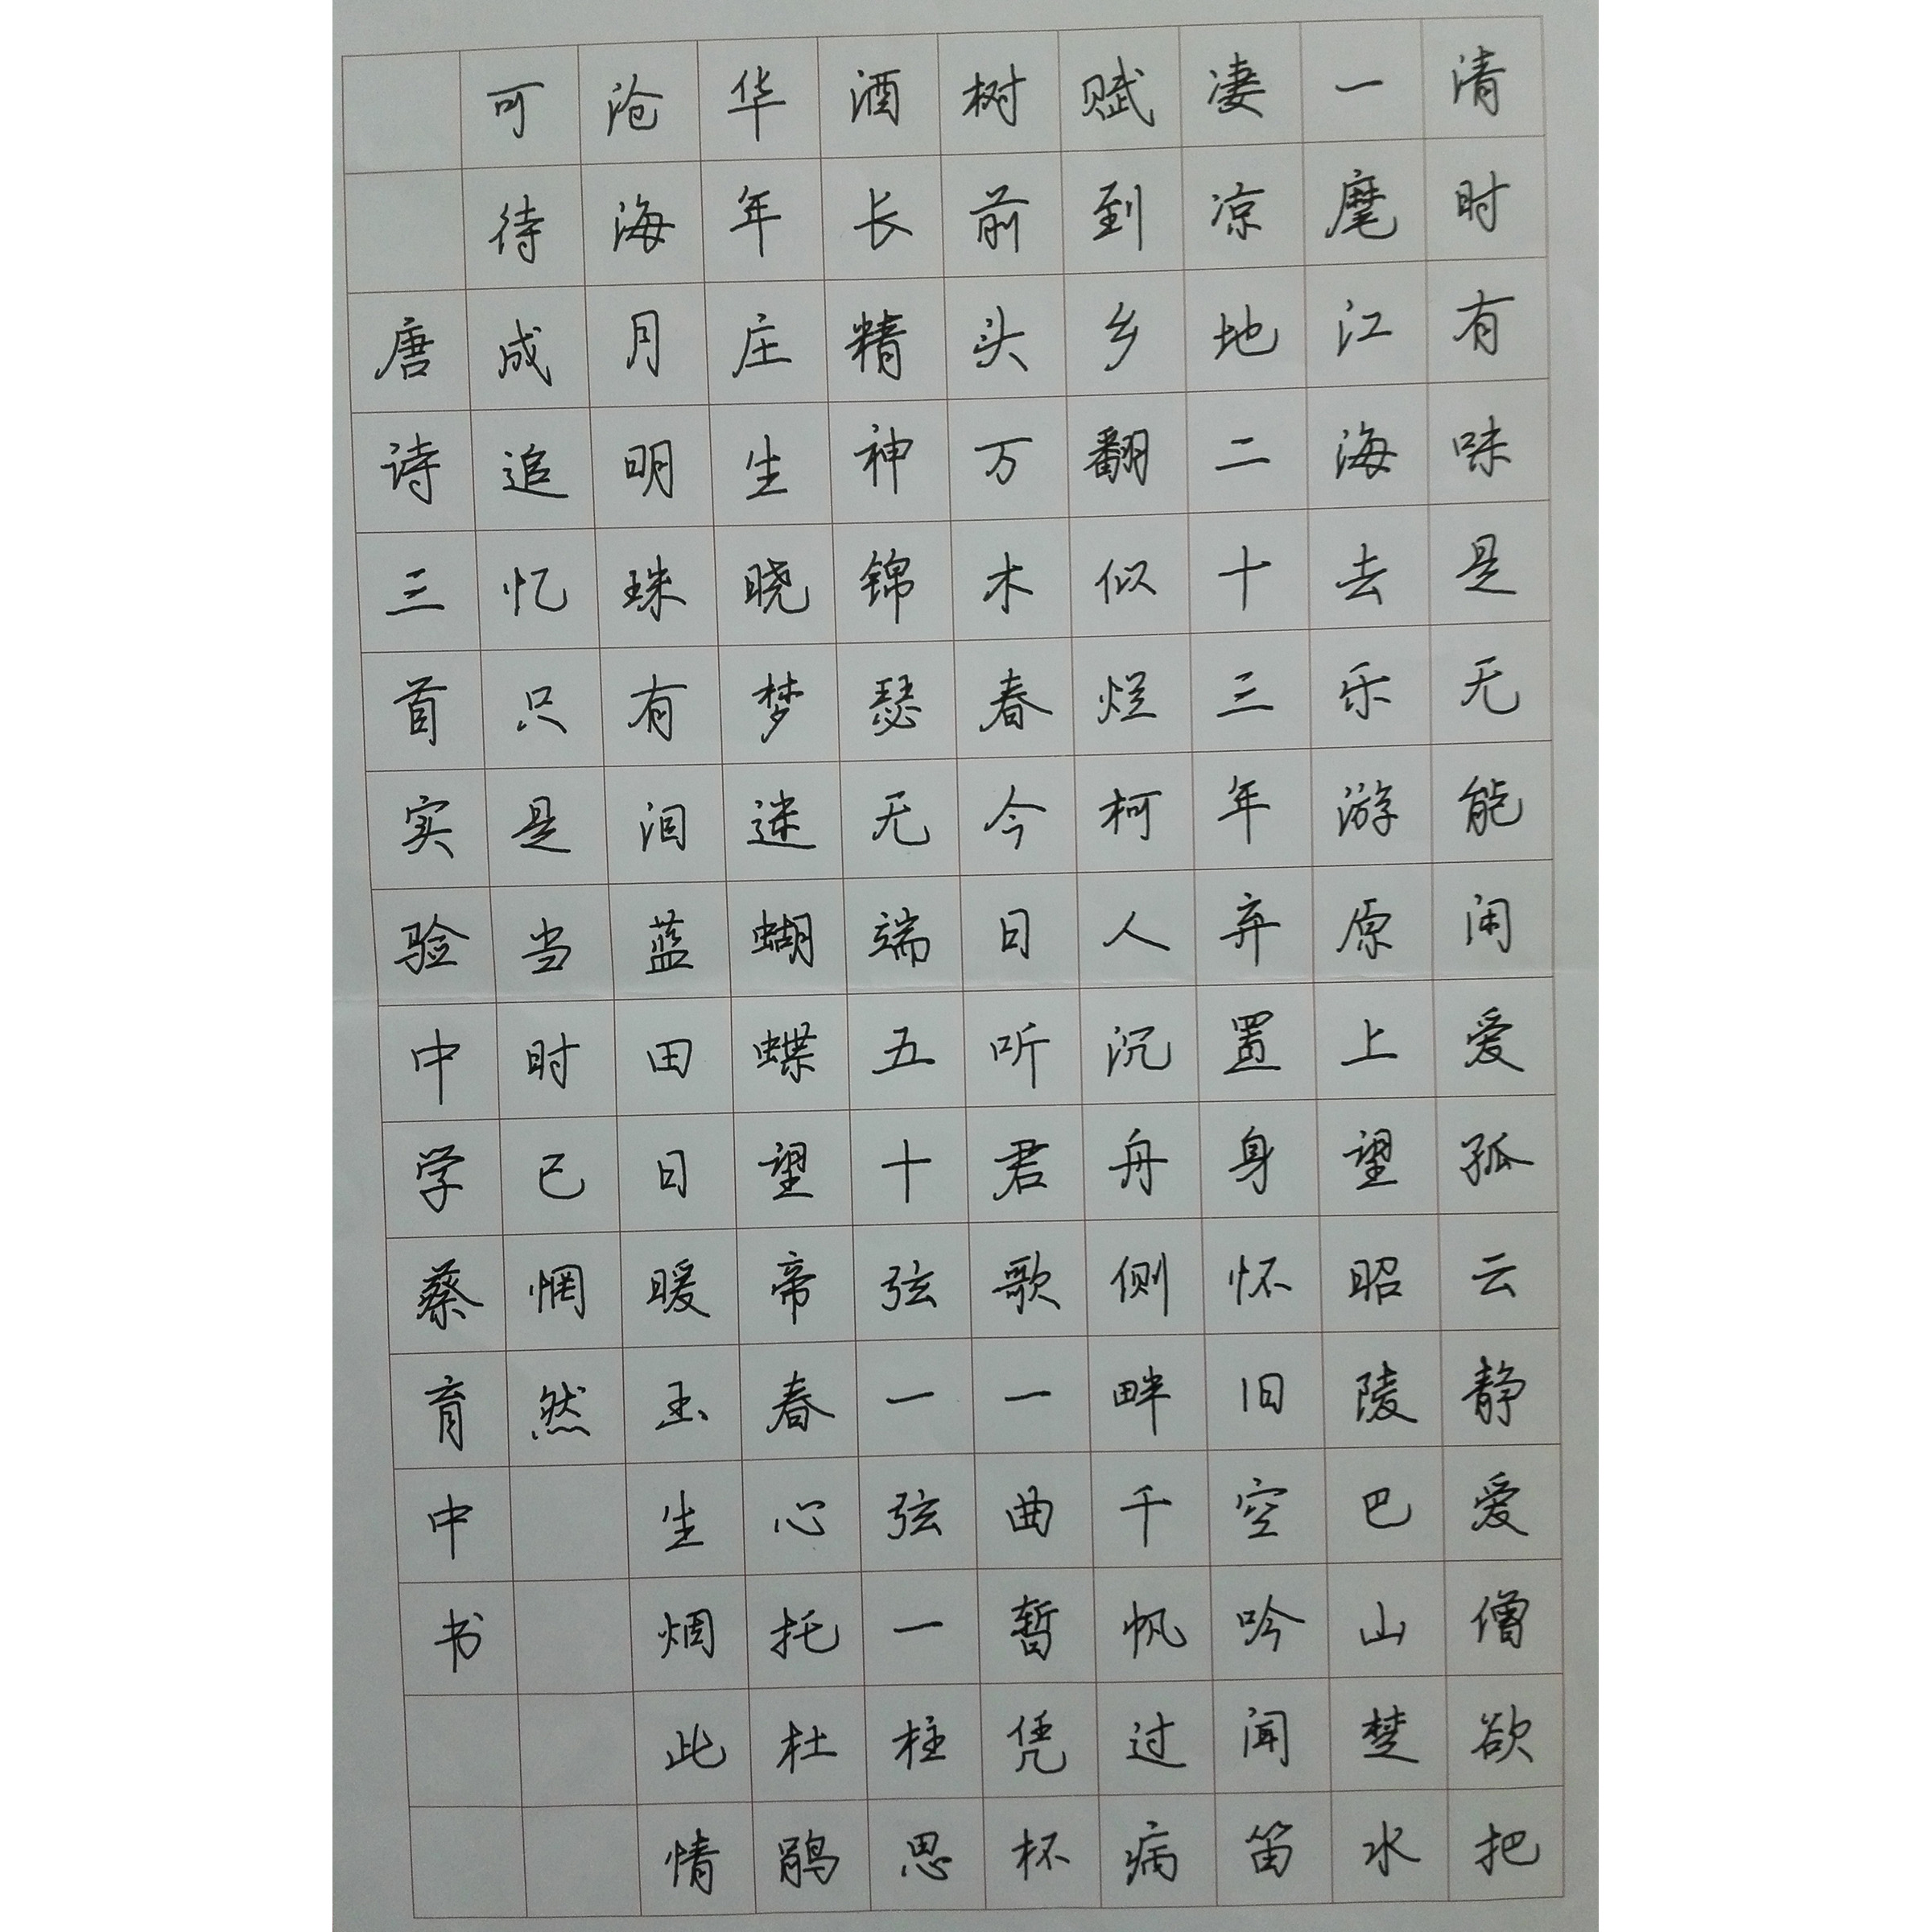 清时有味是无能闲爱孤云静爱僧欲把
一麾江海去乐游原上望昭陵巴山楚水
凄凉地二十三年弃置身怀旧空吟闻笛
赋到乡翻似烂柯人沉舟侧畔千帆过病
树前头万木春今日听君歌一曲暂凭杯
酒长精神锦瑟无端五十弦一弦一柱思
华年庄生晓梦迷蝴蝶望帝春心托杜鹃
沧海月明珠有泪蓝田日暖玉生烟此情
可待成追忆只是当时已惘然
唐诗三首实验中学蔡育中书